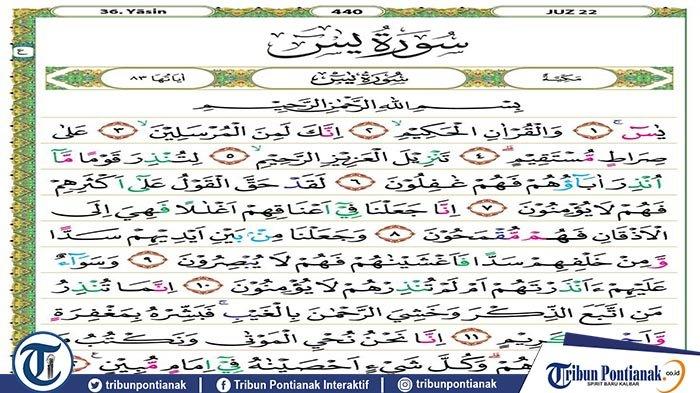 36. Yāsin 440 JUZ 22
سُوْرَةُ يٰسۤ
اٰيَاتُهَا ٨٣ سُوْرَةُ يٰسۤ مَكِّيَّةٌ
بِسْمِ اللّٰهِ الرَّحْمٰنِ الرَّحِيْمِ
يٰسۤ ۚ ١ وَالْقُرْاٰنِ الْحَكِيْمِۙ ٢ اِنَّكَ لَمِنَ الْمُرْسَلِيْنَۙ ٣ عَلٰى
صِرَاطٍ مُّسْتَقِيْمٍۗ ٤ تَنْزِيْلَ الْعَزِيْزِ الرَّحِيْمِۙ ٥ لِتُنْذِرَ قَوْمًا مَّآ
اُنْذِرَ اٰبَاۤؤُهُمْ فَهُمْ غٰفِلُوْنَ ٦ لَقَدْ حَقَّ الْقَوْلُ عَلٰٓى اَكْثَرِهِمْ
فَهُمْ لَا يُؤْمِنُوْنَ ٧ اِنَّا جَعَلْنَا فِيْٓ اَعْنَاقِهِمْ اَغْلٰلًا فَهِيَ اِلَى
الْاَذْقَانِ فَهُمْ مُّقْمَحُوْنَ ٨ وَجَعَلْنَا مِنْۢ بَيْنِ اَيْدِيْهِمْ سَدًّا
وَّمِنْ خَلْفِهِمْ سَدًّا فَاَغْشَيْنٰهُمْ فَهُمْ لَا يُبْصِرُوْنَ ٩ وَسَوَاۤءٌ
عَلَيْهِمْ ءَاَنْذَرْتَهُمْ اَمْ لَمْ تُنْذِرْهُمْ لَا يُؤْمِنُوْنَ ١٠ اِنَّمَا تُنْذِرُ
مَنِ اتَّبَعَ الذِّكْرَ وَخَشِيَ الرَّحْمٰنَ بِالْغَيْبِۚ فَبَشِّرْهُ بِمَغْفِرَةٍ
كَرِيْمٍ ١١ اِنَّا نَحْنُ نُحْيِ الْمَوْتٰى وَنَكْتُبُ
وَكُلَّ شَيْءٍ اَحْصَيْنٰهُ فِيْٓ اِمَامٍ مُّبِيْنٍ
tribunpontianak Tribun Pontianak Interaktif tribunpontianak
Tribun Pontianak.co.id
SPIRIT BARU KALBAR